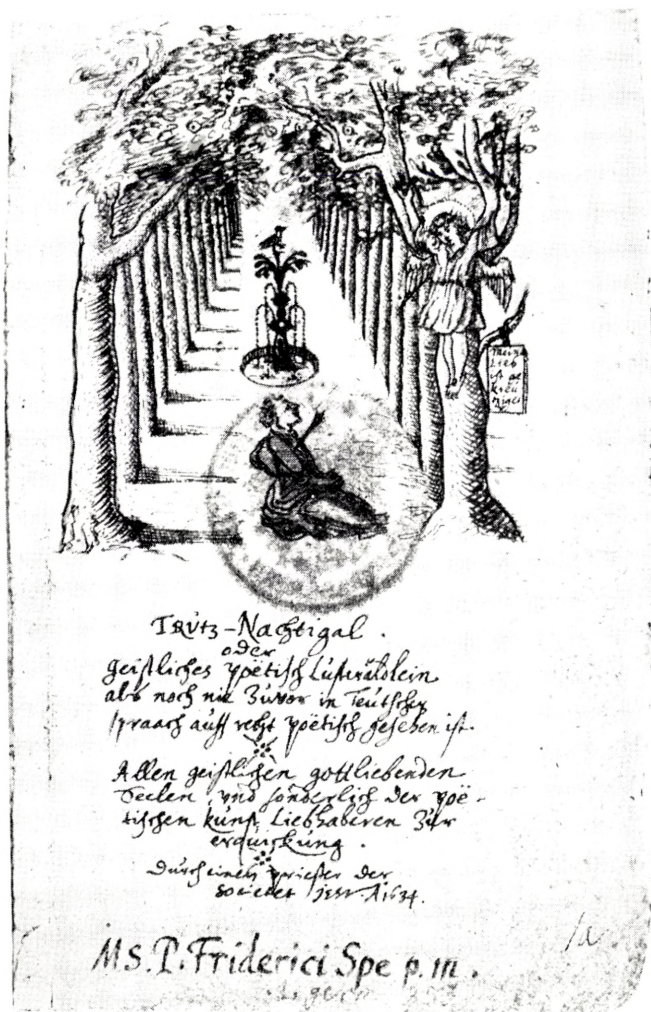 Meine
Lieb
ist ge
kreü
tziget
TRVtz-Nachtigal.
oder
geistliches poëtisch Lustwäldlein
alß noch nie zuvor in Teutscher
spraach auff recht poëtisch gesehen ist.
Allen geistlichen gottliebenden
Seelen, vnd sonderlich der poë-
tischen kunst Liebhaberen zur
erquickung.
durch einen priester der
Societet JESV. A.1634.
1a
MS. P. Friderici Spe p. m.